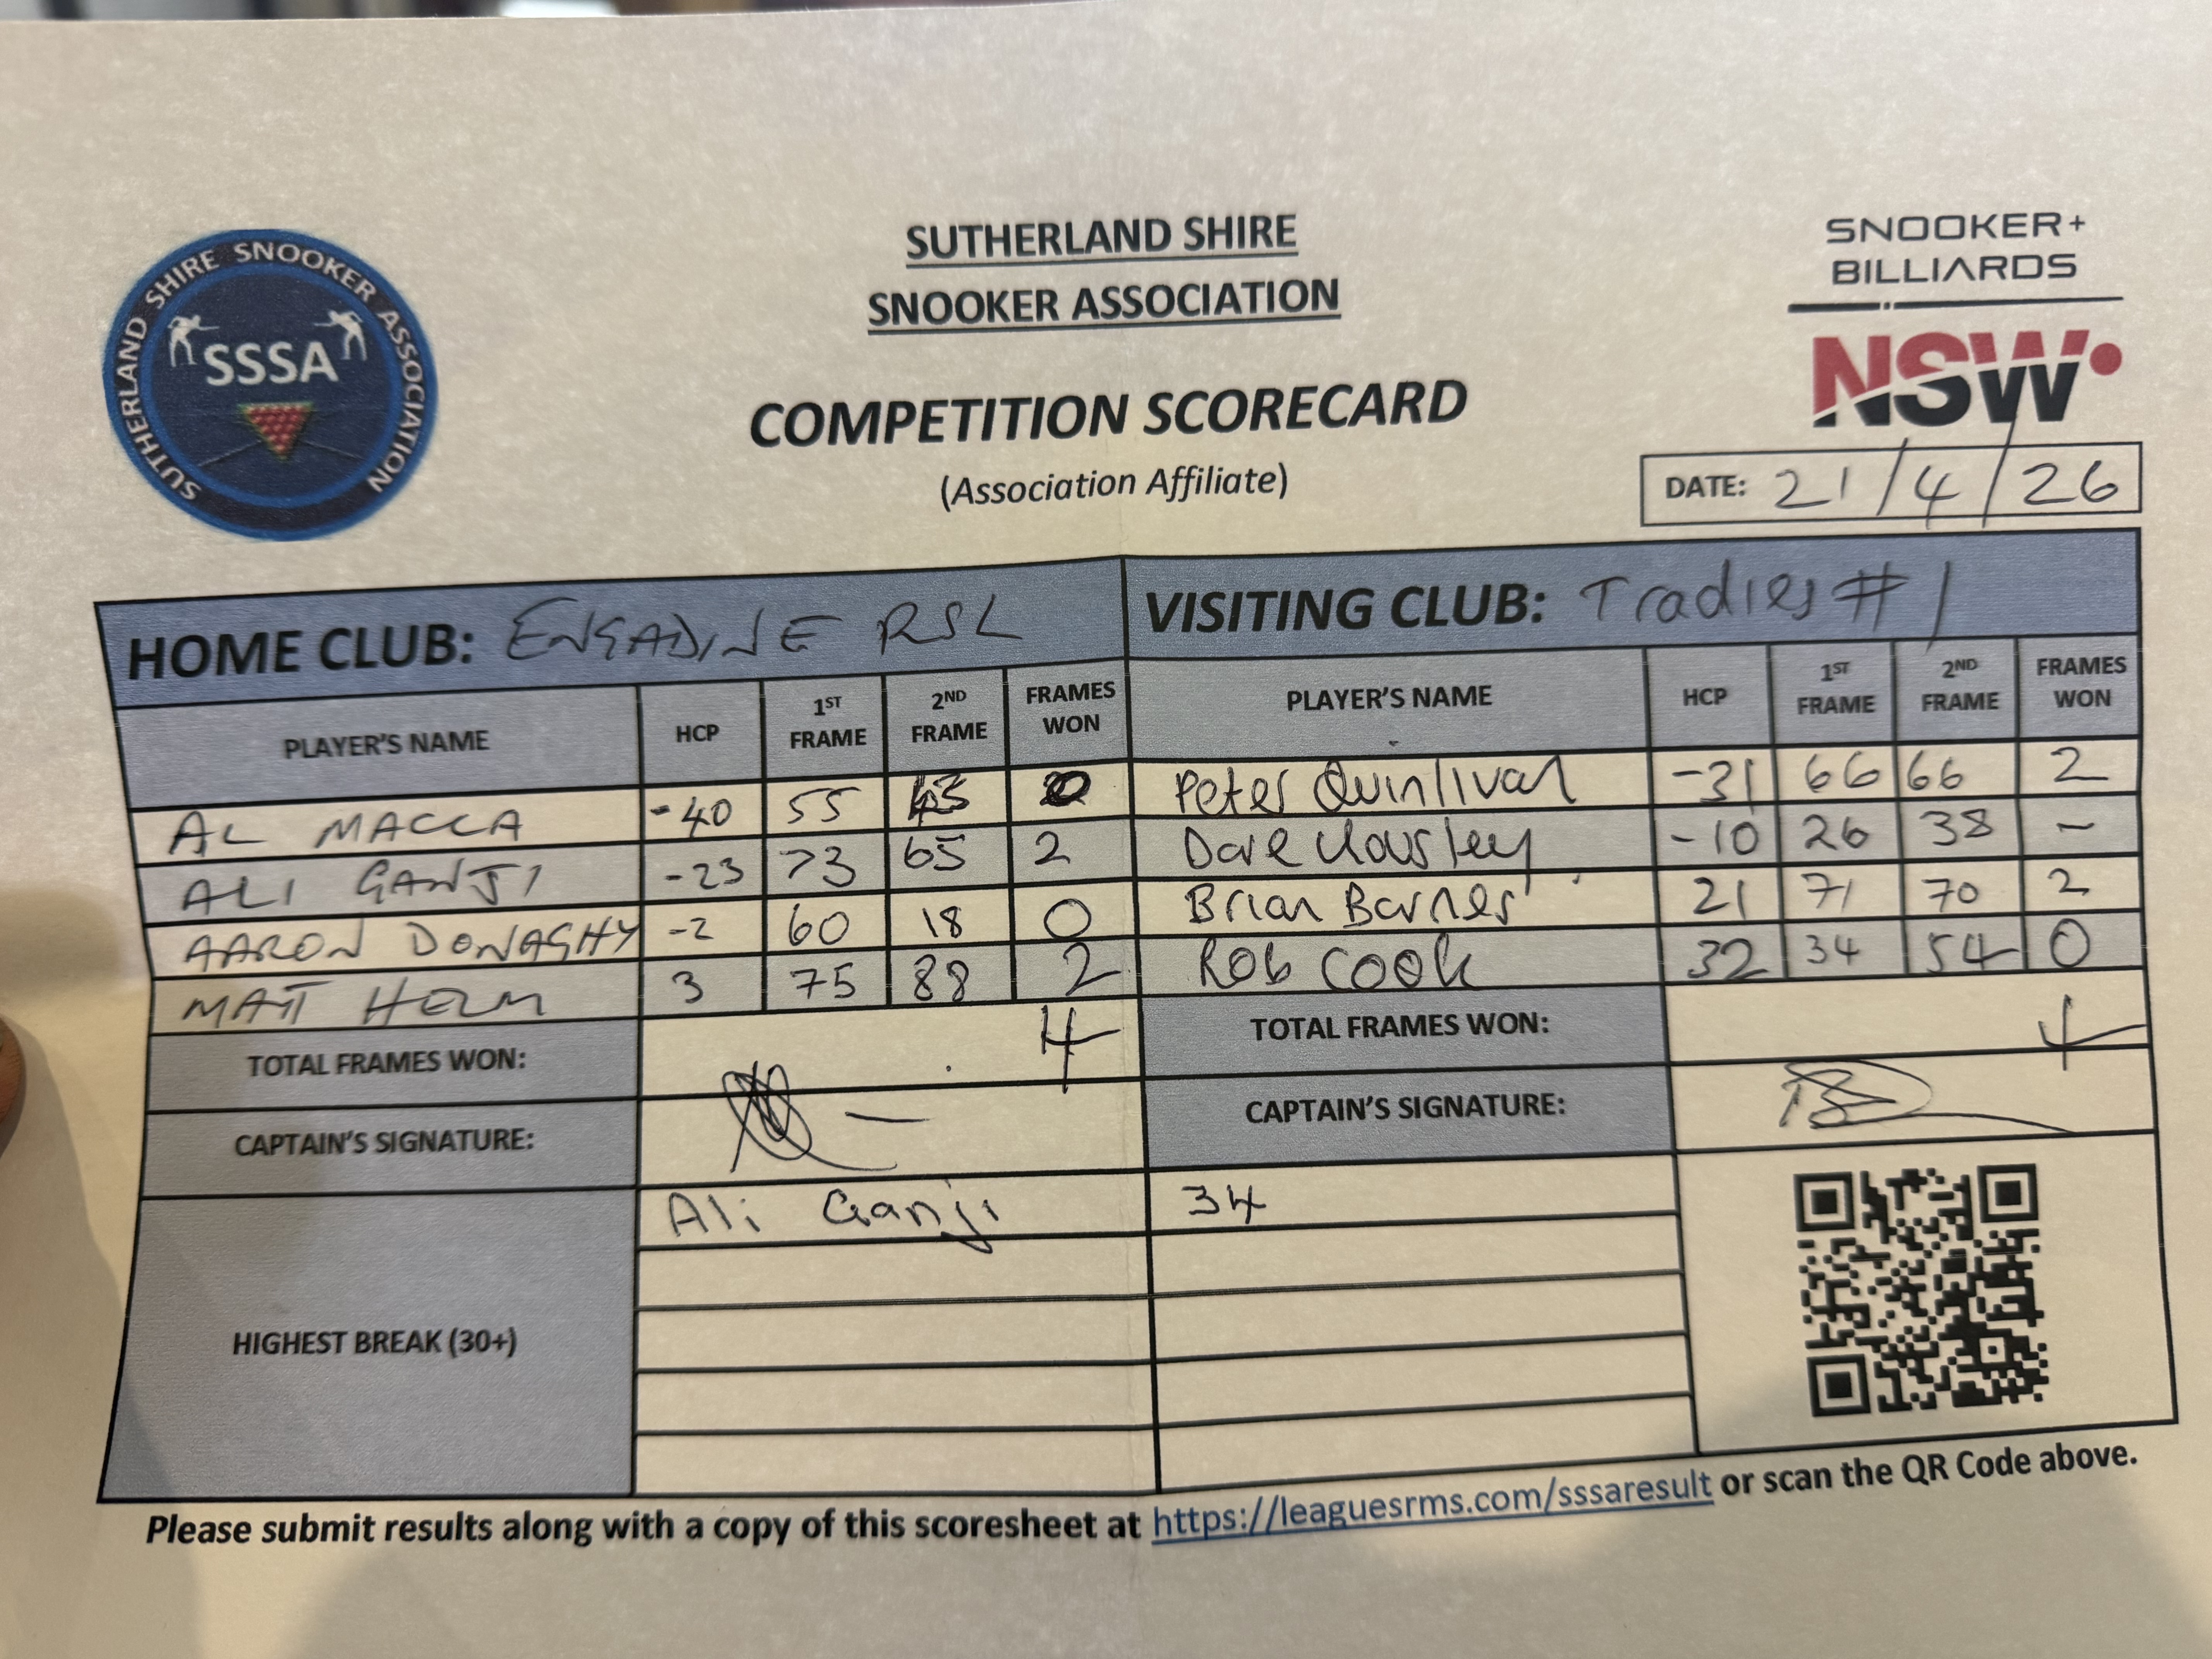 SUTHERLAND SHIRE SNOOKER ASSOCIATION
SSSA
SUTHERLAND SHIRE
SNOOKER ASSOCIATION
COMPETITION SCORECARD
(Association Affiliate)
SNOOKER+
BILLIARDS
NSW
DATE: 21/4/26
HOME CLUB: ENGADINE RSL VISITING CLUB: Tradies #1
PLAYER'S NAME HCP 1ST FRAME 2ND FRAME FRAMES WON PLAYER'S NAME HCP 1ST FRAME 2ND FRAME FRAMES WON
AL MACCA -40 55 Peter Quinlivan -31 66 66 2
ALI GANJI -23 73 65 2 Dave -10 26 38 -
AARON DONAGHY -2 60 18 0 Brian Barnes 21 71 70 2
MATT HELM 3 75 88 2 Rob Cook 32 34 54 0
TOTAL FRAMES WON: 4 TOTAL FRAMES WON: 4
CAPTAIN'S SIGNATURE: CAPTAIN'S SIGNATURE:
HIGHEST BREAK (30+) Ali Ganji 34
Please submit results along with a copy of this scoresheet at https://leaguesrms.com/sssaresult or scan the QR Code above.